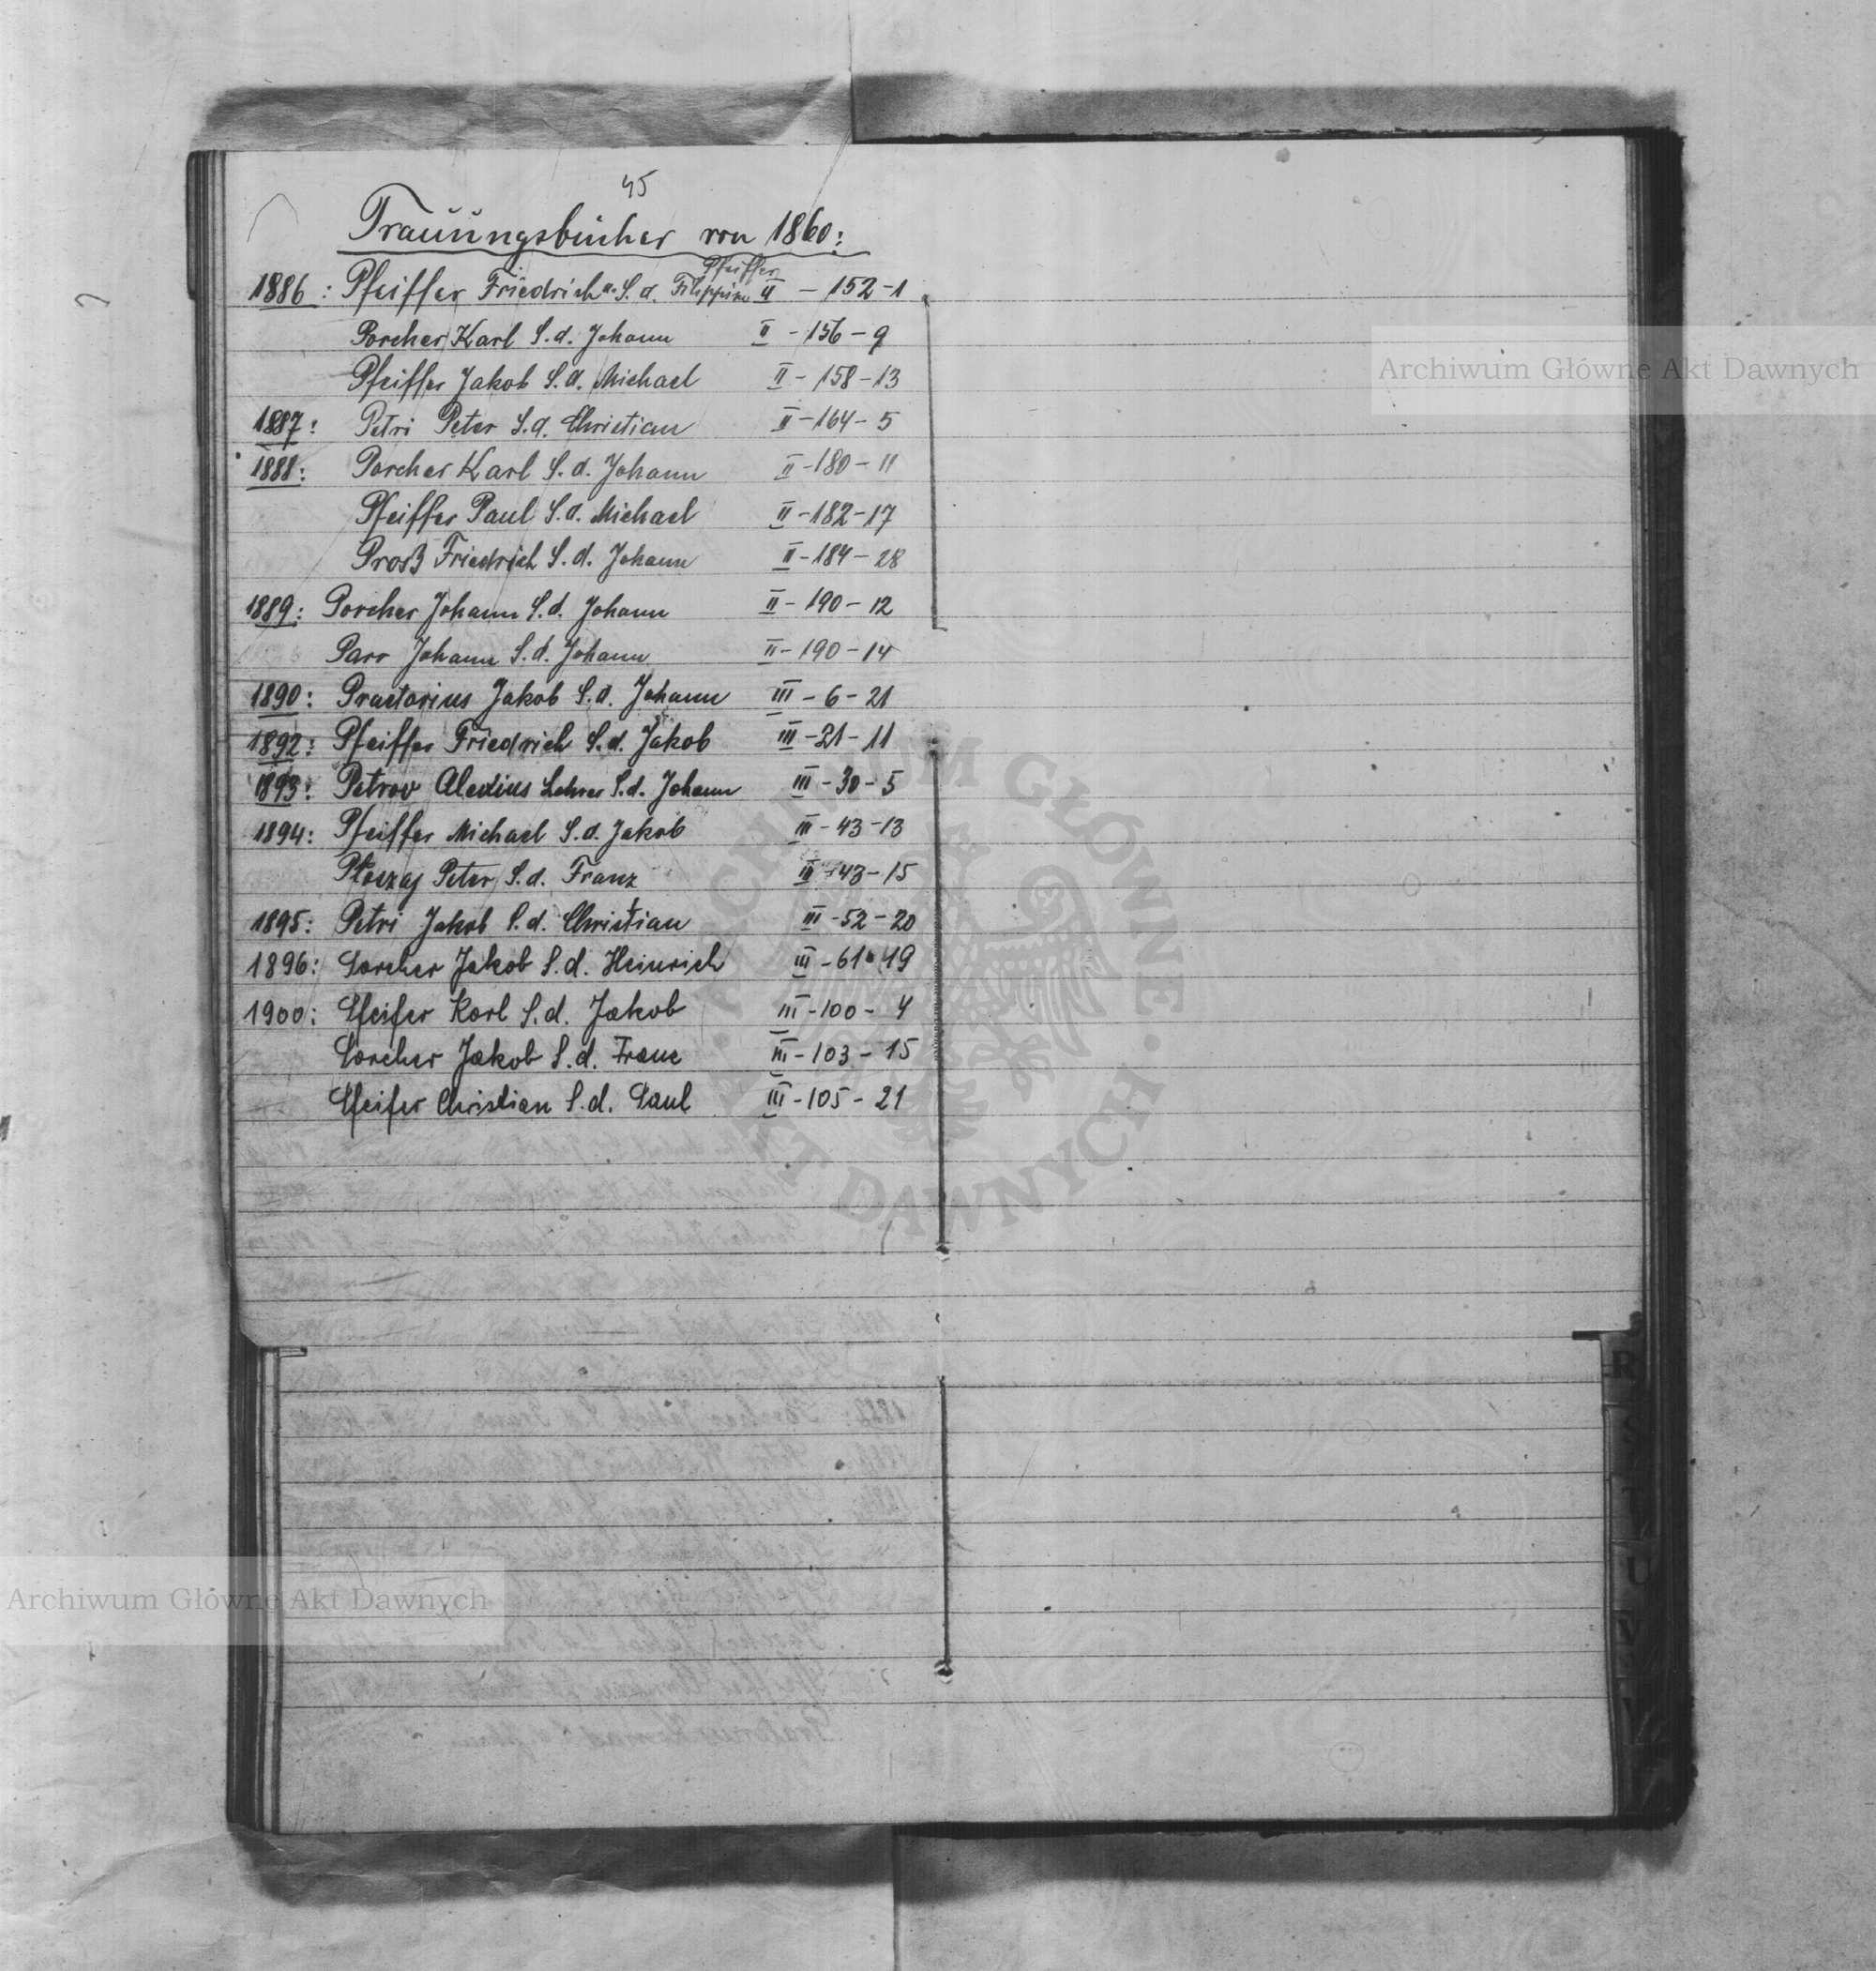 45
Trauungsbücher von 1860:
Pfeiffer
1886: Pfeiffer Friedrich u. S. d. Filippine II - 152-1
Porcher Karl S. d. Johann II - 156 - 9
Pfeiffer Jakob S. d. Michael II - 158 - 13
1887: Petri Peter S. d. Christian II - 164 - 5
1888: Porcher Karl S. d. Johann II - 180 - 11
Pfeiffer Paul S. d. Michael II - 182 - 17
Proß Friedrich S. d. Johann II - 184 - 28
1889: Porcher Johann S. d. Johann II - 190 - 12
Parr Johann S. d. Johann II - 190 - 14
1890: Praetorius Jakob S. d. Johann III - 6 - 21
1892: Pfeiffer Friedrich S. d. Jakob III - 21 - 11
1893: Petrov Alexius Lehrer S. d. Johann III - 30 - 5
1894: Pfeiffer Michael S. d. Jakob III - 43 - 13
Płoszaj Peter S. d. Franz III - 43 - 15
1895: Petri Jakob S. d. Christian III - 52 - 20
1896: Porcher Jakob S. d. Heinrich III - 61 - 19
1900: Pfeifer Karl S. d. Jakob III - 100 - 4
Porcher Jakob S. d. Franc III - 103 - 15
Pfeifer Christian S. d. Paul III - 105 - 21
R
S
T
U
V
Archiwum Główne Akt Dawnych
ARCHIWUM GŁÓWNE AKT DAWNYCH
Archiwum Główne Akt Dawnych